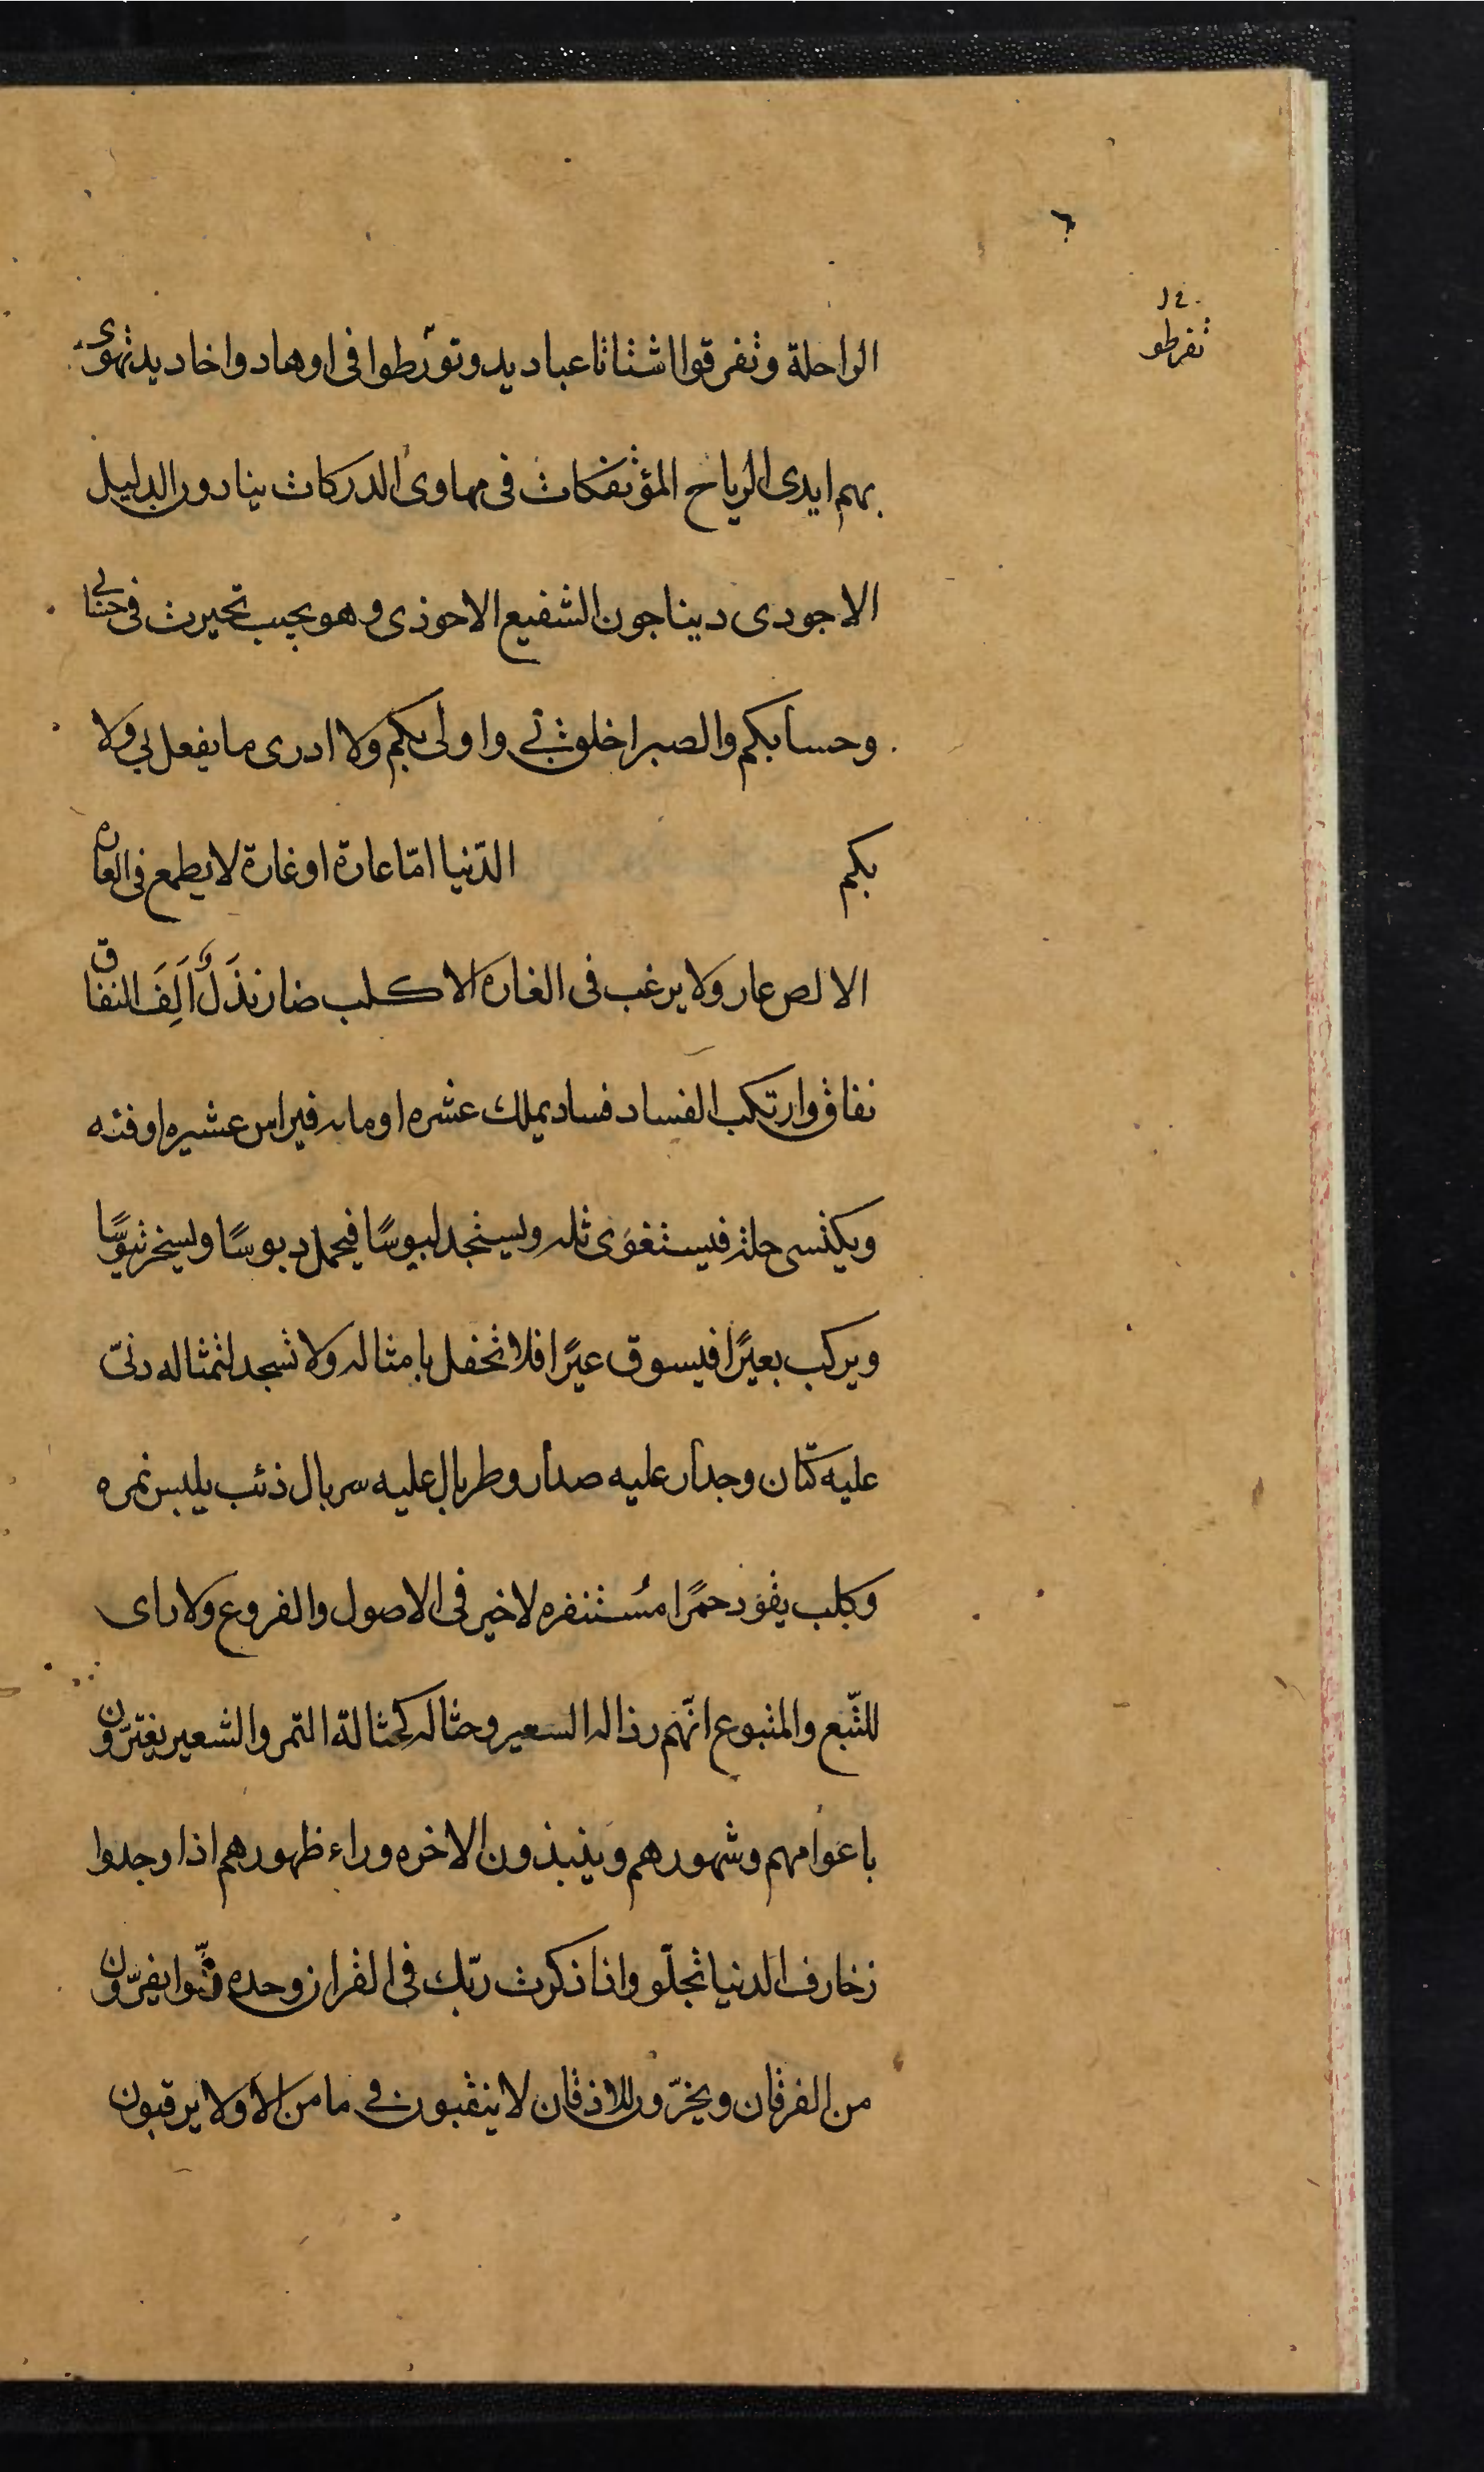 ٦
١٤٠
تفرطو
الراحلة وتفرقوا اشتاتا عباديد وتورطوا فى اوهاد واخاديد تهوى
بهم ايدى الرياح المؤتفكات فى مهاوى الدركات ينادون الدليل
الاجودى ديناجون الشفيع الاحوذى وهو يجيب تحيرت فى حسابى
وحسابكم والصبر اخلق بى واولى بكم ولا ادرى ما يفعل بى ولا
بكم الدّنيا امّا عارة او غارة لا يطمع فى العاره
الا لص عار ولا يرغب فى الغاره الا كلب ضار نذل الف النفاق
نفاق وارتكب الفساد فساد يملك عشره او مايه فيراس عشيره او فئه
ويكتسى حلة فيستغوى ثله ويستجد لبوسًا فيحمل دبوسًا ويسخر تيوسًا
ويركب بعيرًا فيسوق عيرًا فلا تحفل بامثاله ولا تسجد لتمثاله دنّ
عليه كتان وجدار عليه صدار وطربال عليه سربال ذئب يلبس نمره
وكلب يقود حمرًا مُستنفره لا خير فى الاصول والفروع ولا راى
للتّبع والمتبوع انّهم رذاله السعير وحثاله كحثالة التمر والشعير يغترّون
باعوامهم وشهورهم وينبذون الاخره وراء ظهورهم اذا وجدوا
زخارف الدنيا تجلّو واذا ذكرت ربّك فى القران وحده ولّوا يفرّون
من الفرقان ويخرّون للاذقان لا ينقبون فى مامن الا ولا يرقبون